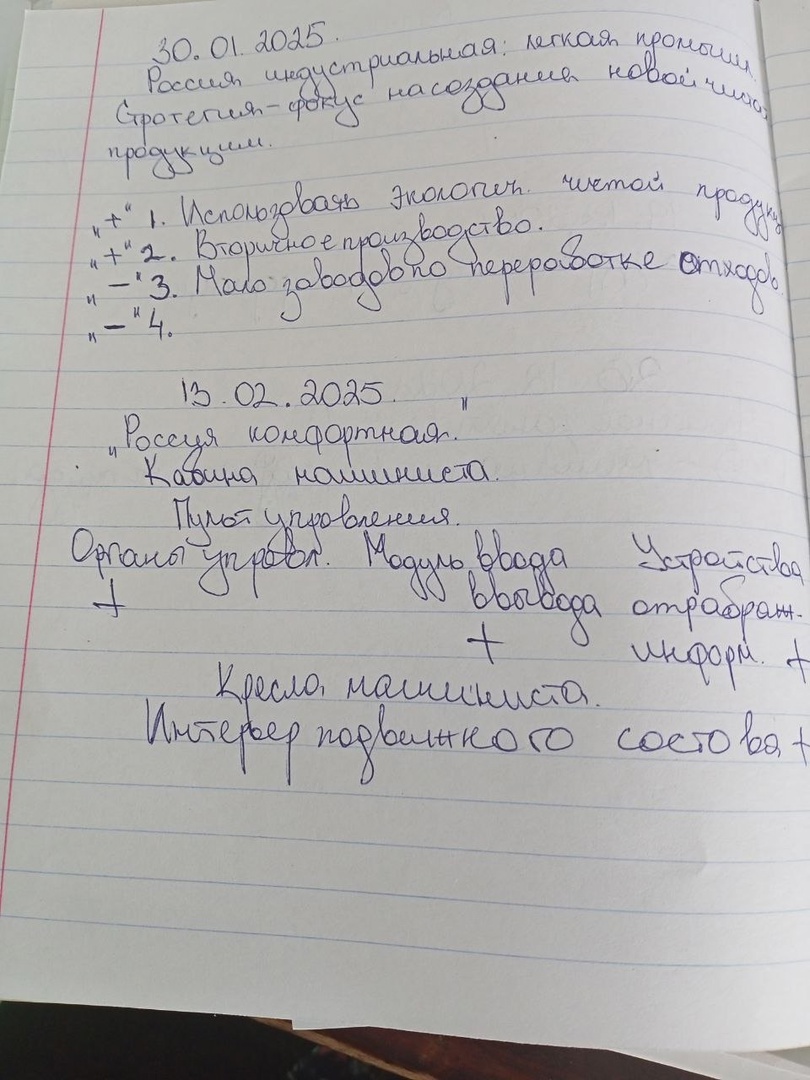 30.01.2025.
Россия индустриальная: легкая промышл.
Стротегия - фокус на создания новой чисто
продукции.
„+“ 1. Использовать экологич. чистой продукц
„+“ 2. Вторичное производство.
„-“ 3. Мало заводов по переработке отходов.
„-“ 4.
13.02.2025.
„Россия комфортная.“
Кабина машиниста.
Пульт управления.
Органы управл. Модуль ввода Устройства
+ ввывода отрабраж.
+ информ. +
Кресло машиниста.
Интерьер подвижного состова +